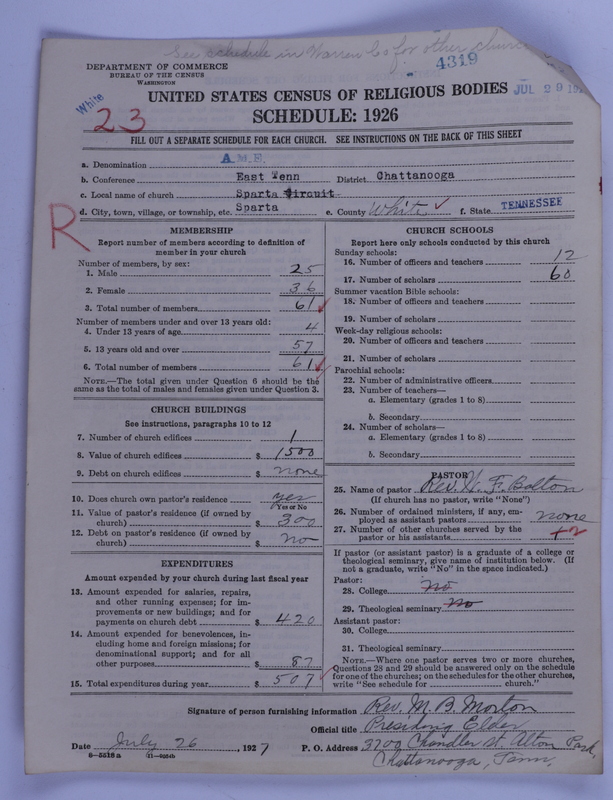 See schedule in Warren Co for other church
4319
DEPARTMENT OF COMMERCE
BUREAU OF THE CENSUS
WASHINGTON
JUL 29 19
White
23
UNITED STATES CENSUS OF RELIGIOUS BODIES
SCHEDULE: 1926
FILL OUT A SEPARATE SCHEDULE FOR EACH CHURCH. SEE INSTRUCTIONS ON THE BACK OF THIS SHEET
a. Denomination A.M.E.
b. Conference East Tenn District Chattanooga
c. Local name of church Sparta Circuit
d. City, town, village, or township, etc. Sparta e. County White f. State TENNESSEE
R
MEMBERSHIP
Report number of members according to definition of
member in your church
Number of members, by sex:
1. Male 25
2. Female 36
3. Total number of members 61
Number of members under and over 13 years old:
4. Under 13 years of age 4
5. 13 years old and over 57
6. Total number of members 61
NOTE.—The total given under Question 6 should be the
same as the total of males and females given under Question 3.
CHURCH BUILDINGS
See instructions, paragraphs 10 to 12
7. Number of church edifices 1
8. Value of church edifices $1500
9. Debt on church edifices $none
10. Does church own pastor's residence yes
Yes or No
11. Value of pastor's residence (if owned by
church) $300
12. Debt on pastor's residence (if owned by
church) $no
EXPENDITURES
Amount expended by your church during last fiscal year
13. Amount expended for salaries, repairs,
and other running expenses; for im-
provements or new buildings; and for
payments on church debt $420
14. Amount expended for benevolences, in-
cluding home and foreign missions; for
denominational support; and for all
other purposes $87
15. Total expenditures during year $507
CHURCH SCHOOLS
Report here only schools conducted by this church
Sunday schools:
16. Number of officers and teachers 12
17. Number of scholars 60
Summer vacation Bible schools:
18. Number of officers and teachers
19. Number of scholars
Week-day religious schools:
20. Number of officers and teachers
21. Number of scholars
Parochial schools:
22. Number of administrative officers
23. Number of teachers—
a. Elementary (grades 1 to 8)
b. Secondary
24. Number of scholars—
a. Elementary (grades 1 to 8)
b. Secondary
PASTOR
25. Name of pastor Rev. H. F. Bolton
(If church has no pastor, write "None")
26. Number of ordained ministers, if any, em-
ployed as assistant pastors none
27. Number of other churches served by the
pastor or his assistants 2
If pastor (or assistant pastor) is a graduate of a college or
theological seminary, give name of institution below. (If
not a graduate, write "No" in the space indicated.)
Pastor:
28. College No
29. Theological seminary No
Assistant pastor:
30. College
31. Theological seminary
NOTE.—Where one pastor serves two or more churches,
Questions 28 and 29 should be answered only on the schedule
for one of the churches; on the schedules for the other churches,
write "See schedule for church."
Signature of person furnishing information Rev. M. B. Morton
Official title Presiding Elder
Date July 26, 1927 P. O. Address 3700 Chandler St. Alton Park,
Chattanooga, Tenn.